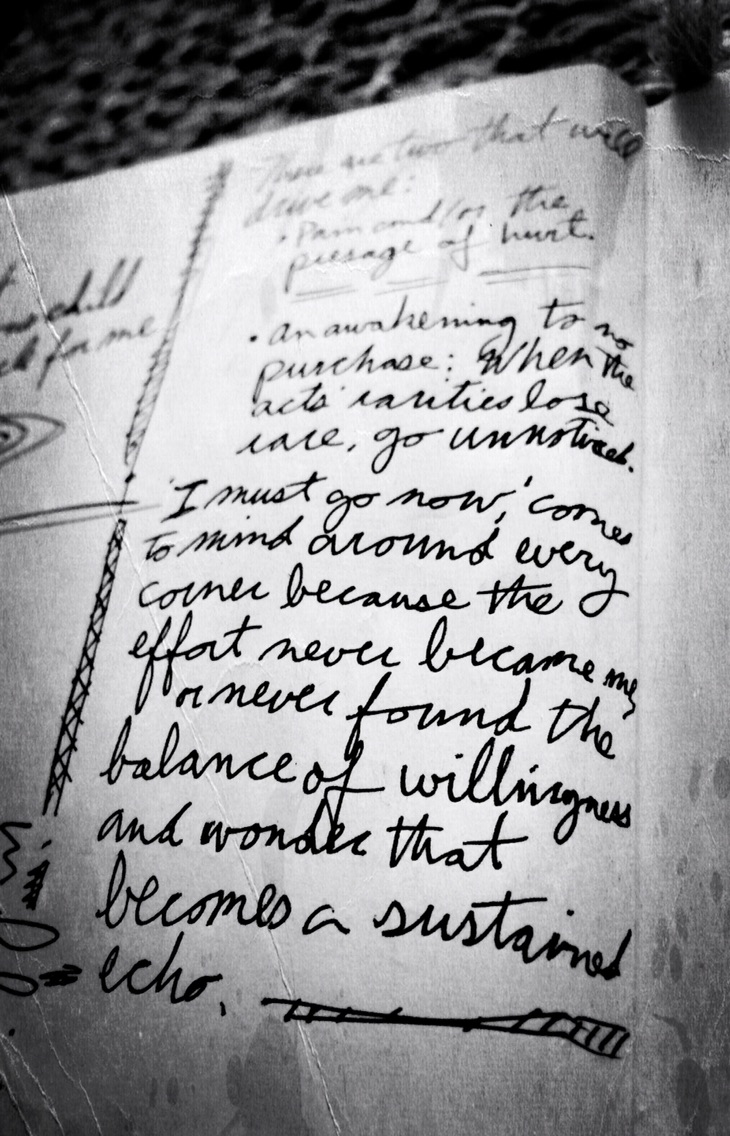 There are two that will
drive me:
• Pain and/or the
presage of hurt.
child
for me
• An awakening to no
purchase: When the
acts' rarities lose
rare, go unnoticed.
'I must go now,' comes
to mind around every
corner because the
effort never became me,
or never found the
balance of willingness
and wonder that
becomes a sustained
echo.